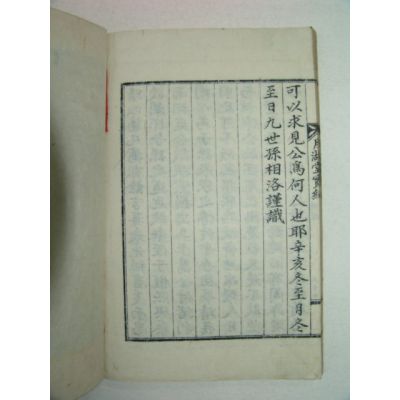 可以求見公爲何人也耶辛亥冬至月冬
至日九世孫相洛謹識
月湖堂實紀